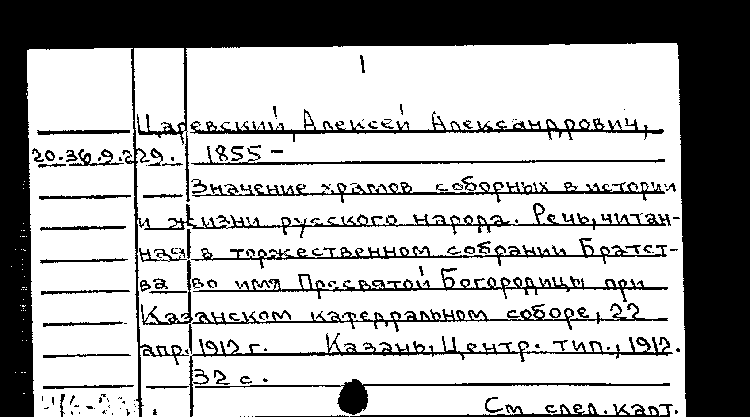 1
Царевский, Алексей Александрович,
20.36.9.229. 1855 -
Значение храмов соборных в истории
и жизни русского народа. Речь, читан-
ная в торжественном собрании Братст-
ва во имя Пресвятой Богородицы при
Казанском кафедральном соборе, 22
апр. 1912 г. Казань, Центр. тип., 1912.
32 с.
См след. карт.